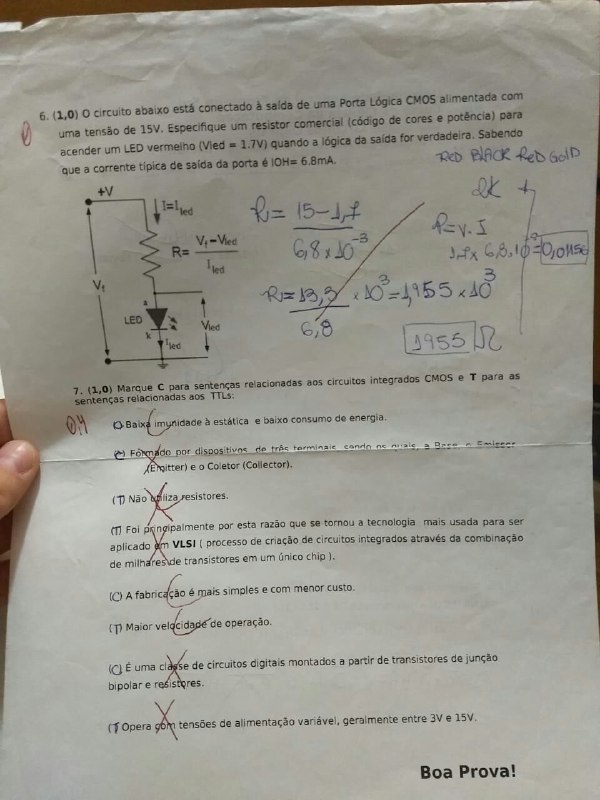 6. (1,0) O circuito abaixo está conectado à saída de uma Porta Lógica CMOS alimentada com
uma tensão de 15V. Especifique um resistor comercial (código de cores e potência) para
acender um LED vermelho (Vled = 1.7V) quando a lógica da saída for verdadeira. Sabendo
que a corrente típica de saída da porta é IOH= 6.8mA.
RED BLACK RED GOLD
2K
+V
I=Iled
R= Vf-Vled
Iled
Vf
LED
a
k
Iled
Vled
R= 15-1,7
6,8 x 10^-3
P=V.I
1,7 x 6,8.10^-3=0,01156
R=13,3 x 10^3=1,955 x 10^3
6,8
1955 Ω
7. (1,0) Marque C para sentenças relacionadas aos circuitos integrados CMOS e T para as
sentenças relacionadas aos TTLs:
0,4
(C) Baixa imunidade à estática e baixo consumo de energia.
(C) Formado por dispositivos de três terminais, sendo os quais, a Base, o Emissor
(Emitter) e o Coletor (Collector).
(T) Não utiliza resistores.
(T) Foi principalmente por esta razão que se tornou a tecnologia mais usada para ser
aplicado em VLSI ( processo de criação de circuitos integrados através da combinação
de milhares de transistores em um único chip ).
(C) A fabricação é mais simples e com menor custo.
(T) Maior velocidade de operação.
(C) É uma classe de circuitos digitais montados a partir de transistores de junção
bipolar e resistores.
(T) Opera com tensões de alimentação variável, geralmente entre 3V e 15V.
Boa Prova!